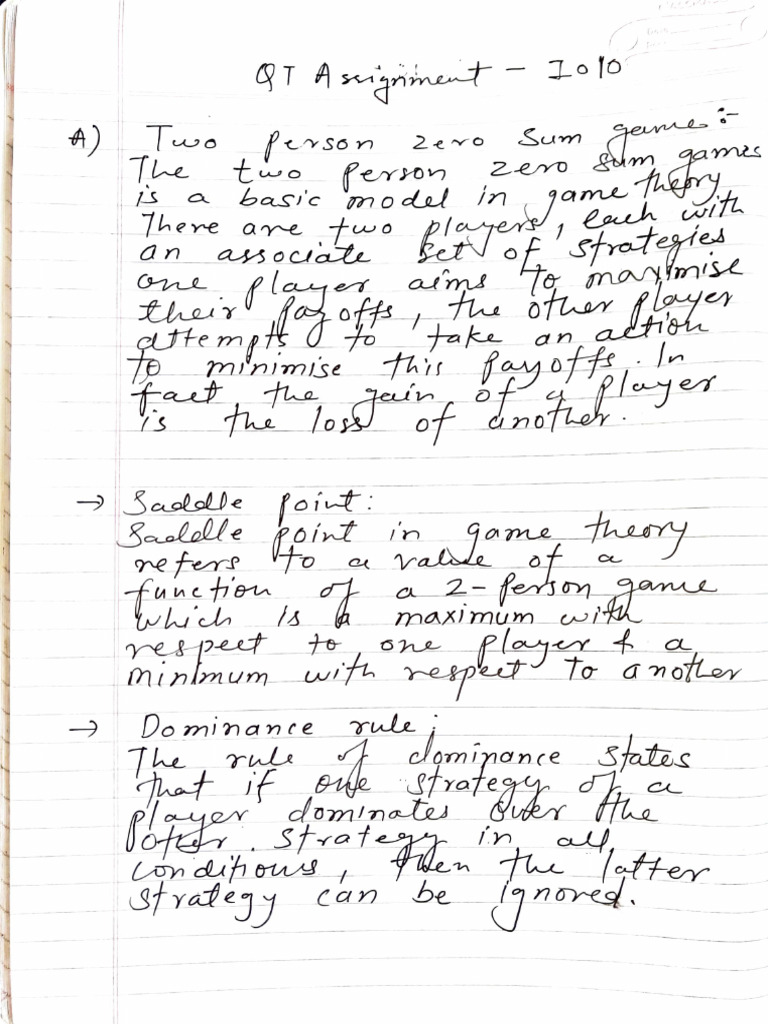 QT Assignment - 1010
A) Two person zero sum game:-
The two person zero sum games
is a basic model in game theory
There are two players, each with
an associate set of strategies
one player aims to maximise
their payoffs, the other player
attempts to take an action
to minimise this payoffs. In
fact, the gain of a player
is the loss of another.
→ Saddle point:
Saddle point in game theory
refers to a value of a
function of a 2-person game
which is a maximum with
respect to one player & a
minimum with respect to another
→ Dominance rule;
The rule of dominance states
that if one strategy of a
player dominates over the
other strategy in all
conditions, then the latter
strategy can be ignored.